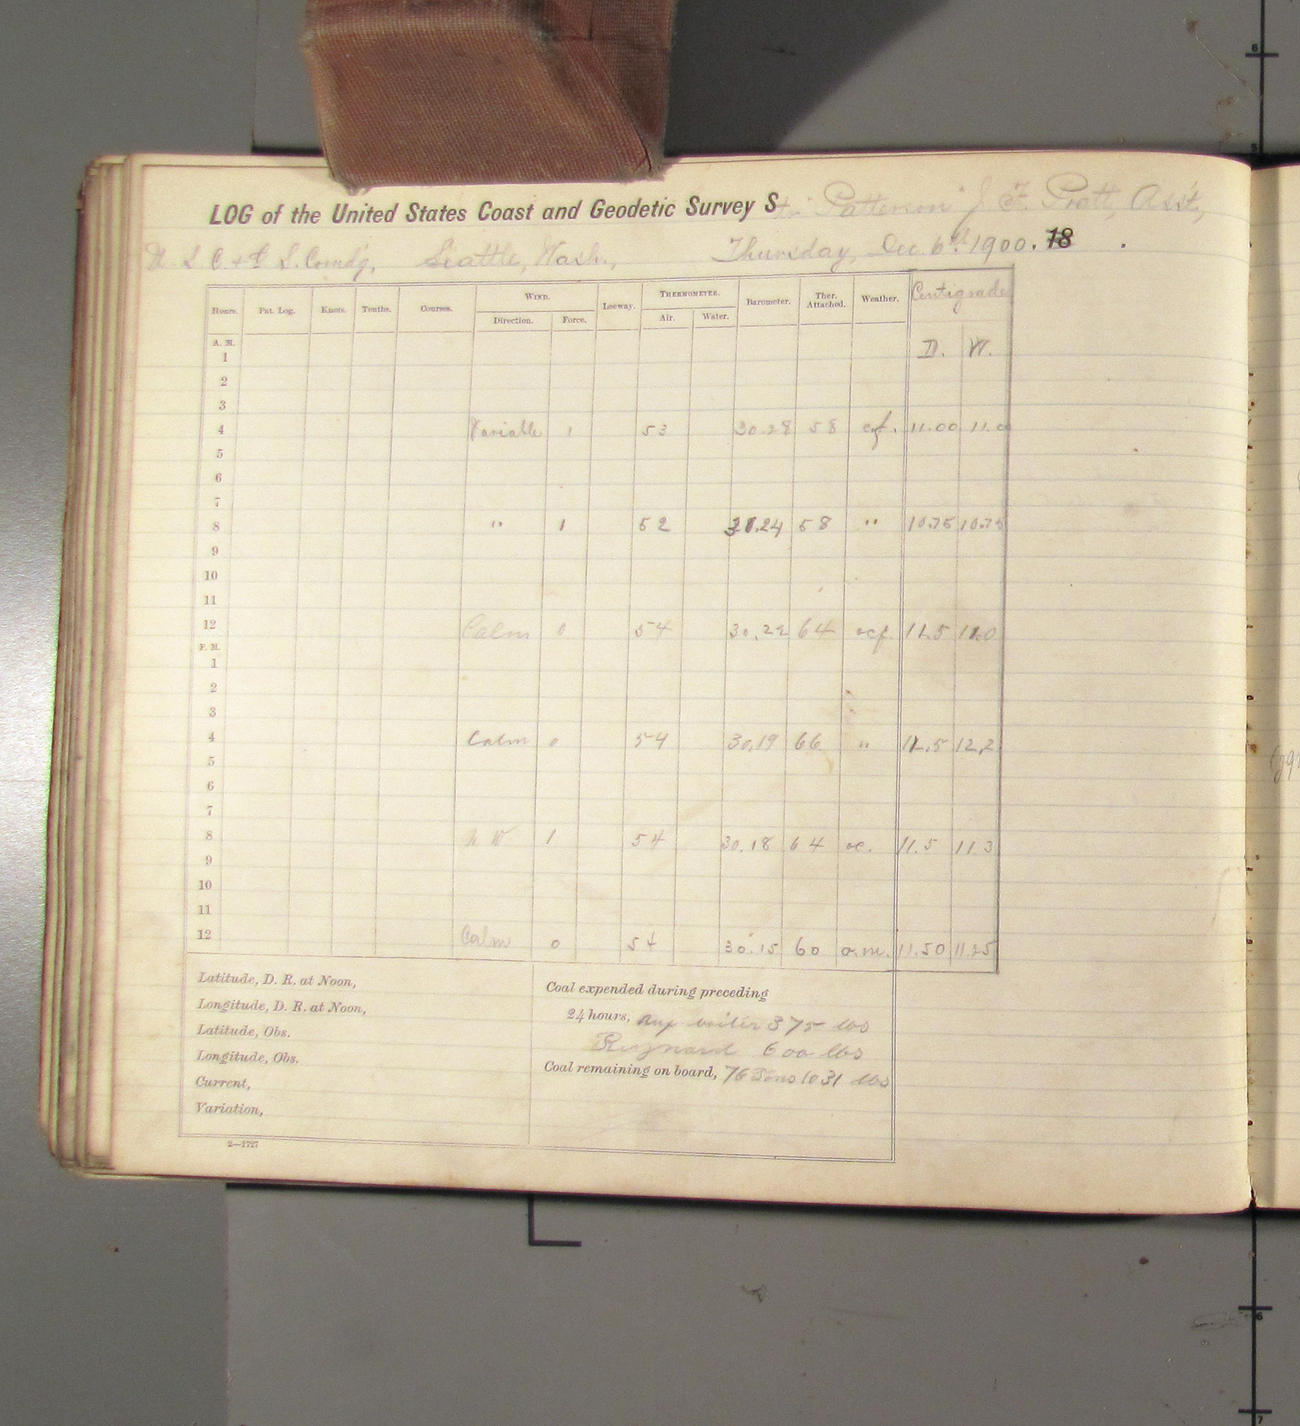 LOG of the United States Coast and Geodetic Survey Str. Patterson J. F. Pratt, Ass't,
U S C. & G S. Comd'g, Seattle, Wash., Thursday, Dec. 6th 1900. 18
Hours. Pat. Log. Knots. Tenths. Courses. WIND. Leeway. THERMOMETER. Barometer. Ther. Attached. Weather. Centigrade
Direction. Force. Air. Water. D. W.
A. M.
1
2
3
4 Variable 1 53 30.28 58 ocf. 11.00 11.0
5
6
7
8 " 1 52 30.24 58 " 10.75 10.75
9
10
11
12 Calm 0 54 30.22 64 ocf. 11.5 11.0
P. M.
1
2
3
4 Calm 0 54 30.19 66 " 12.5 12.2
5
6
7
8 N W 1 54 30.18 64 oc. 11.5 11.3
9
10
11
12 Calm 0 54 30.15 60 o.m. 11.50 11.25
Latitude, D. R. at Noon,
Longitude, D. R. at Noon,
Latitude, Obs.
Longitude, Obs.
Current,
Variation,
Coal expended during preceding
24 hours, Aux boiler 375 lbs
Reynard 600 lbs
Coal remaining on board, 76 Tons 1031 lbs
2—1727